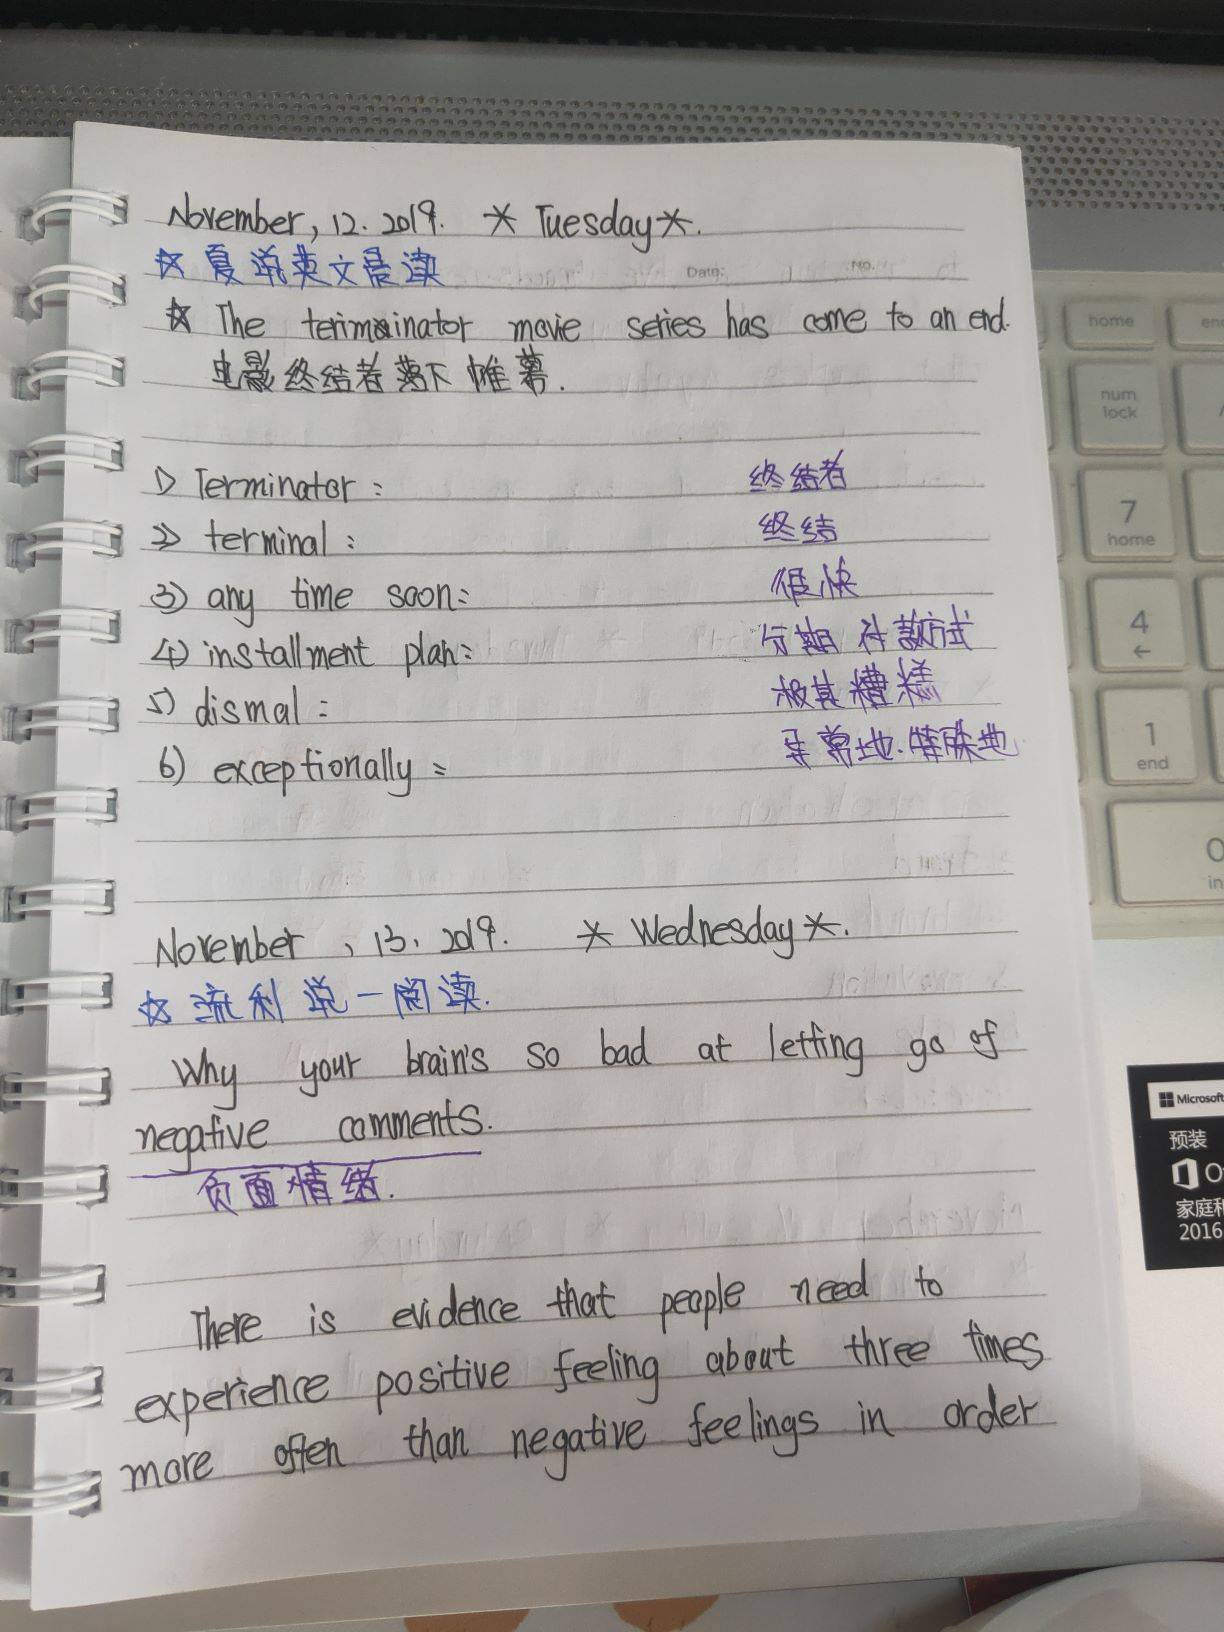 November, 12. 2019. * Tuesday *.
☆ 夏说英文晨读
Date: No.
☆ The terimainator movie series has come to an end.
电影终结者落下帷幕.
1) Terminator: 终结者
2) terminal: 终结
3) any time soon: 很快
4) installment plan: 分期付款方式
5) dismal: 极其糟糕
6) exceptionally: 异常地.特殊地
November, 13. 2019. * Wednesday *.
☆ 流利说一阅读.
Why your brain's so bad at letting go of
negative comments.
负面情绪.
There is evidence that people need to
experience positive feeling about three times
more often than negative feelings in order
home
num
lock
7
home
4
←
1
end
0
Microsoft
预装
家庭和
2016